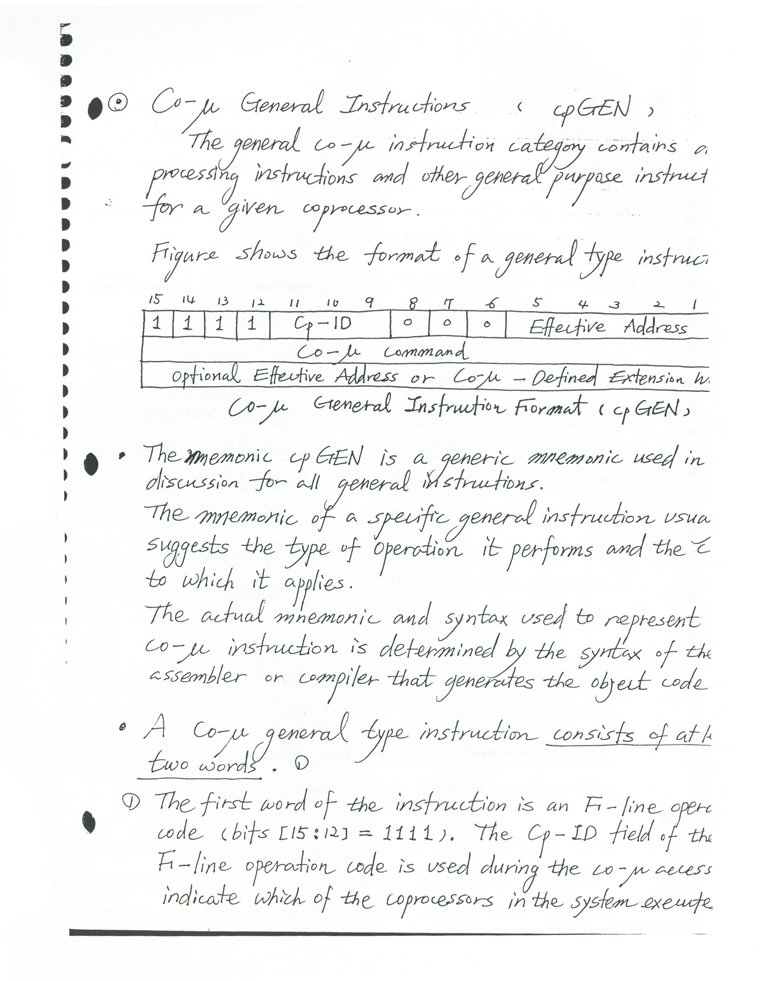 ⊙ Co-μ General Instructions ( cpGEN )
The general co-μ instruction category contains a
processing instructions and other general purpose instruct
for a given coprocessor.
Figure shows the format of a general type instruc
15 14 13 12 11 10 9 8 7 6 5 4 3 2 1
1 1 1 1 Cp-ID 0 0 0 Effective Address
Co-μ command
Optional Effective Address or Co-μ - Defined Extension W
Co-μ General Instruction Format ( cpGEN )
• The mnemonic cpGEN is a generic mnemonic used in
discussion for all general instructions.
The mnemonic of a specific general instruction usua
suggests the type of operation it performs and the
to which it applies.
The actual mnemonic and syntax used to represent
co-μ instruction is determined by the syntax of the
assembler or compiler that generates the object code
• A Co-μ general type instruction consists of at l
two words. ①
① The first word of the instruction is an F-line opera
code (bits [15:12] = 1111). The Cp-ID field of the
F-line operation code is used during the co-μ access
indicate which of the coprocessors in the system execute